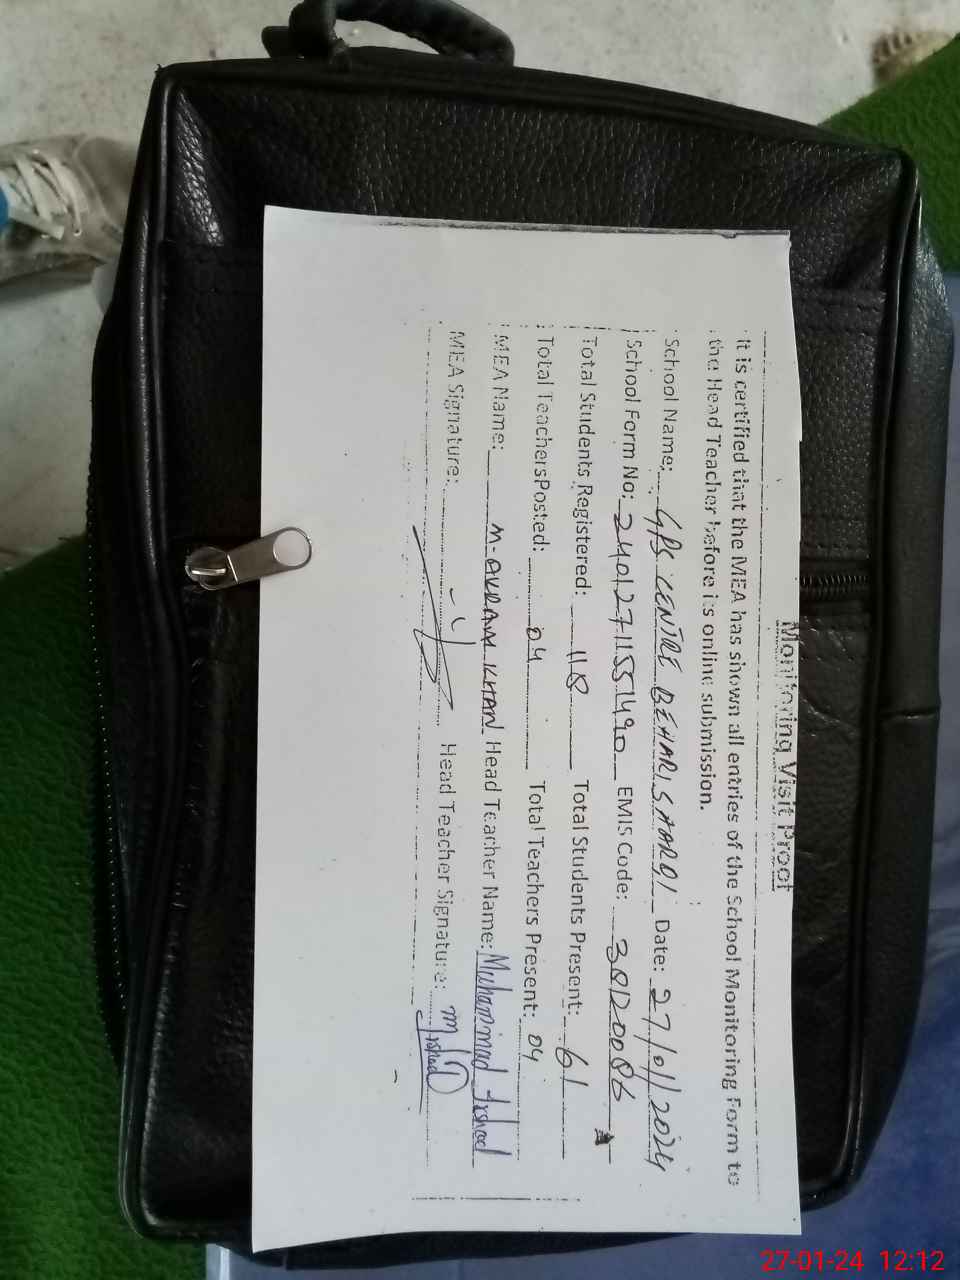 Monitoring Visit Proof
It is certified that the MEA has shown all entries of the School Monitoring Form to
the Head Teacher before its online submission.
School Name: GPS CENTRE BEHARI SHARQI Date: 27/01/2024
School Form No: 24012711551490 EMIS Code:
Total Students Registered: 118 Total Students Present: 61
Total TeachersPosted: 04 Total Teachers Present: 04
MEA Name: M-AKRAM KHAN Head Teacher Name: Muhammad Irshad
MEA Signature: Head Teacher Signature: M Irshad
27-01-24 12:12